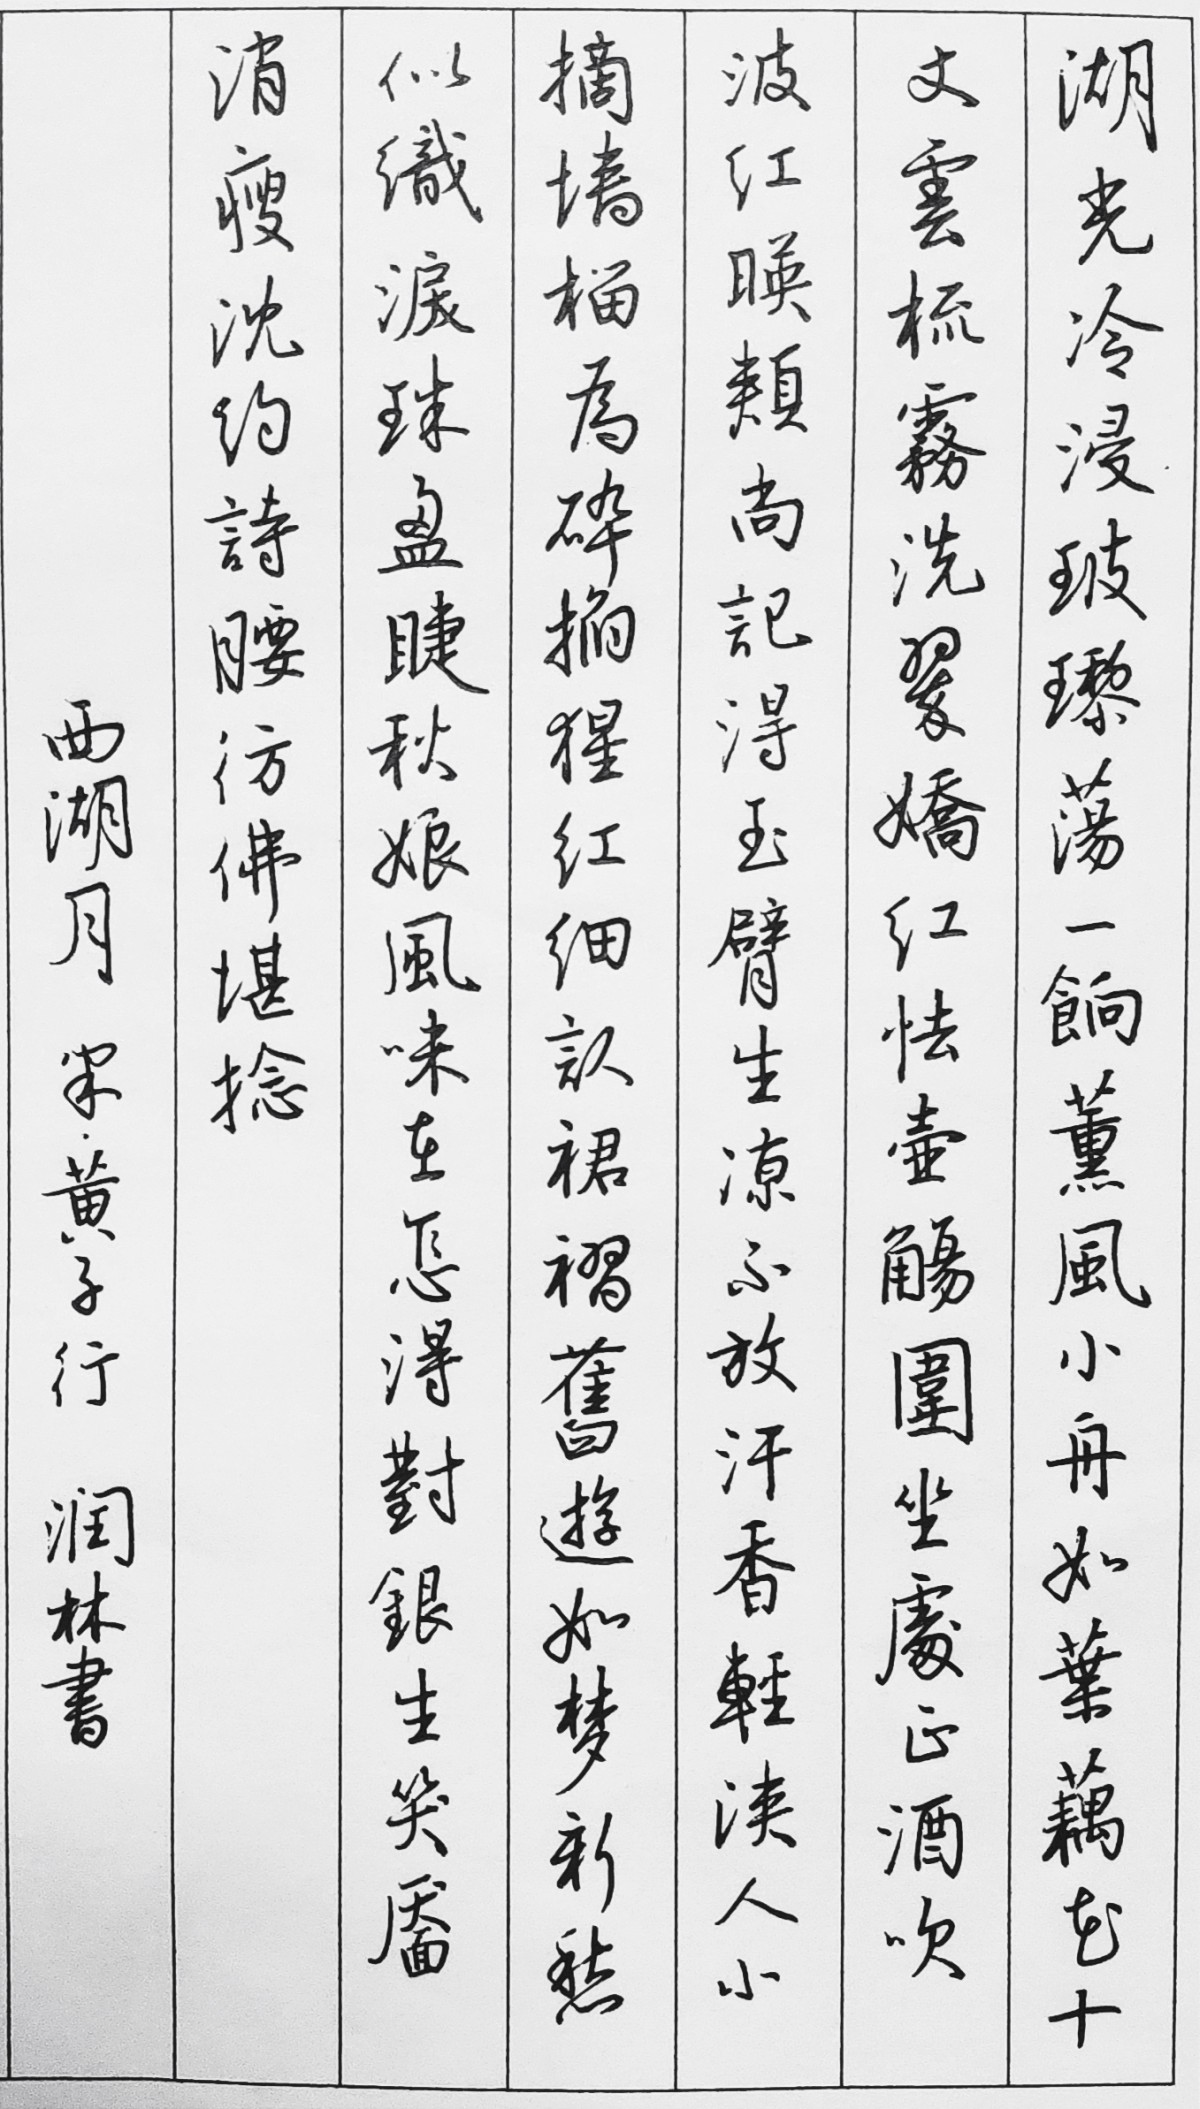 湖光冷浸玻瓈蕩一餉薰風小舟如葉藕花十
丈雲梳霧洗翠嬌紅怯壺觴圍坐處正酒吹
波紅暎頰尚記得玉臂生凉不放汗香輕浹人小
摘墻榴為碎掐猩紅細認裙褶舊遊如梦新愁
似織淚珠盈睫秋娘風味在怎得對銀生笑靨
消瘦沈約詩腰彷佛堪捻
西湖月 宋·黃子行 润林書